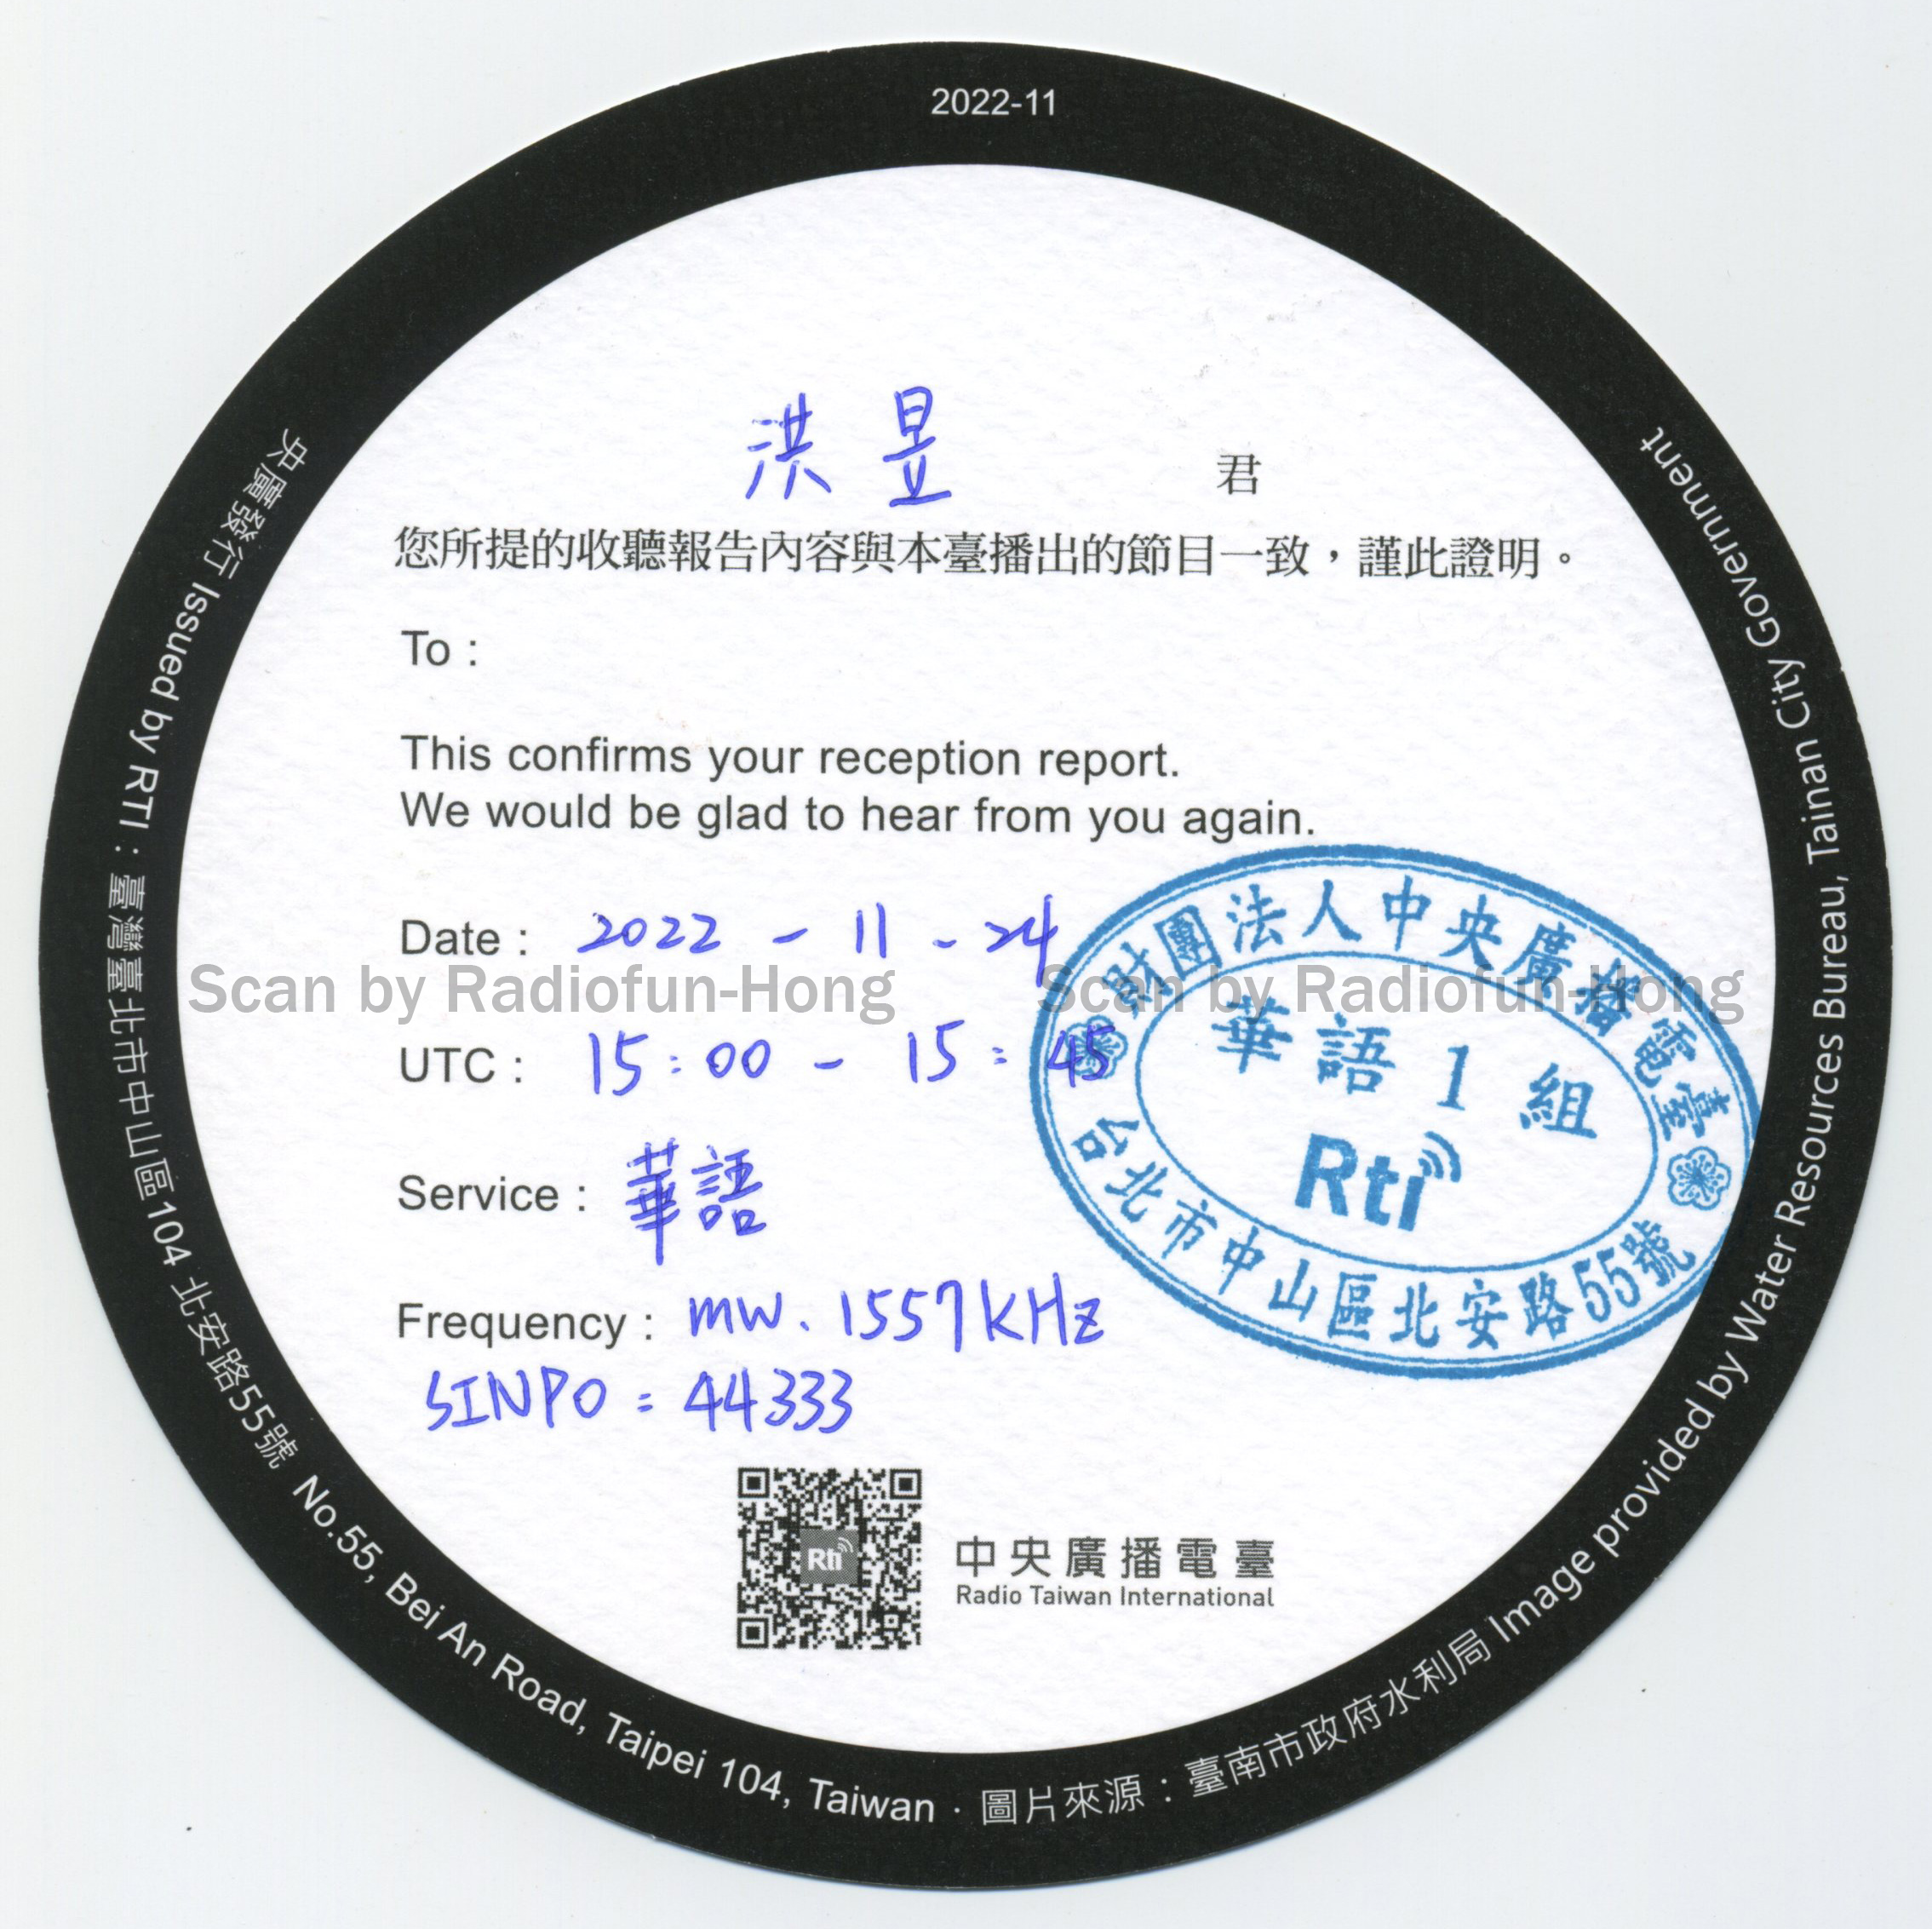 2022-11
洪昱 君
您所提的收聽報告內容與本臺播出的節目一致，謹此證明。
To :
This confirms your reception report.
We would be glad to hear from you again.
Date : 2022 - 11 - 24
Scan by Radiofun-Hong Scan by Radiofun-Hong
UTC : 15:00 - 15:45
Service : 華語
Frequency : MW. 1557KHz
SINPO = 44333
財團法人中央廣播電臺
華語1組
Rti
台北市中山區北安路55號
Rti
中央廣播電臺
Radio Taiwan International
央廣發行 Issued by RTI : 臺灣臺北市中山區104 北安路55號 No.55, Bei An Road, Taipei 104, Taiwan · 圖片來源 : 臺南市政府水利局 Image provided by Water Resources Bureau, Tainan City Government